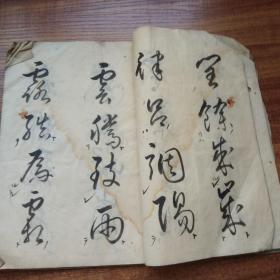 閏餘成歳
律呂調陽
雲騰致雨
露結為霜